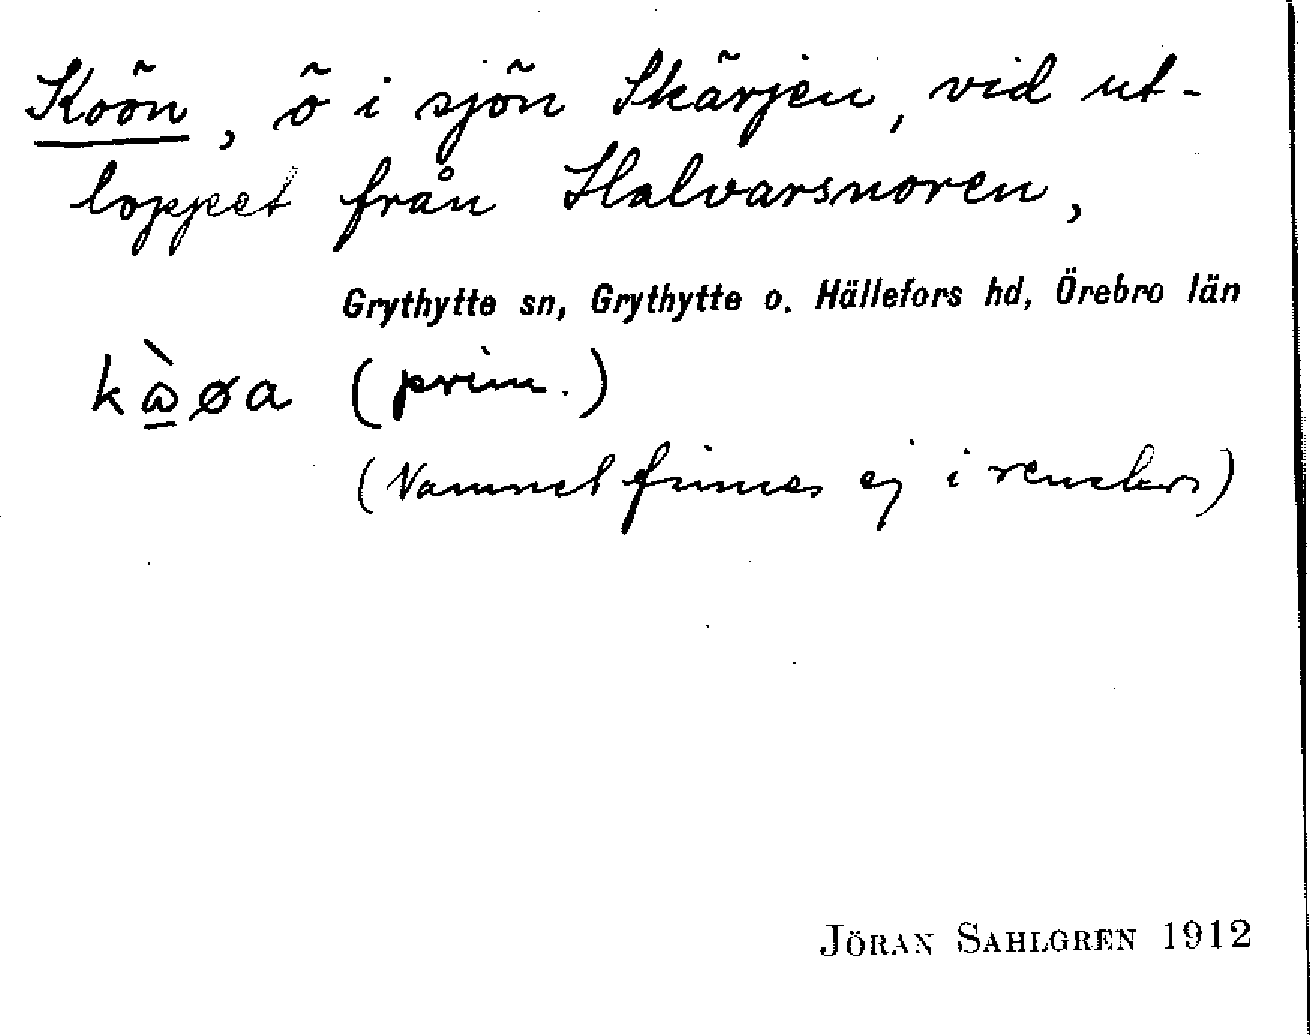 Koön, ö i sjön Skärjen, vid ut-
loppet från Halvarsnoren,
Grythytte sn, Grythytte o. Hällefors hd, Örebro län
kὼ̱øa (prim.)
(Namnet finnes ej i renskr)
JÖRAN SAHLGREN 1912